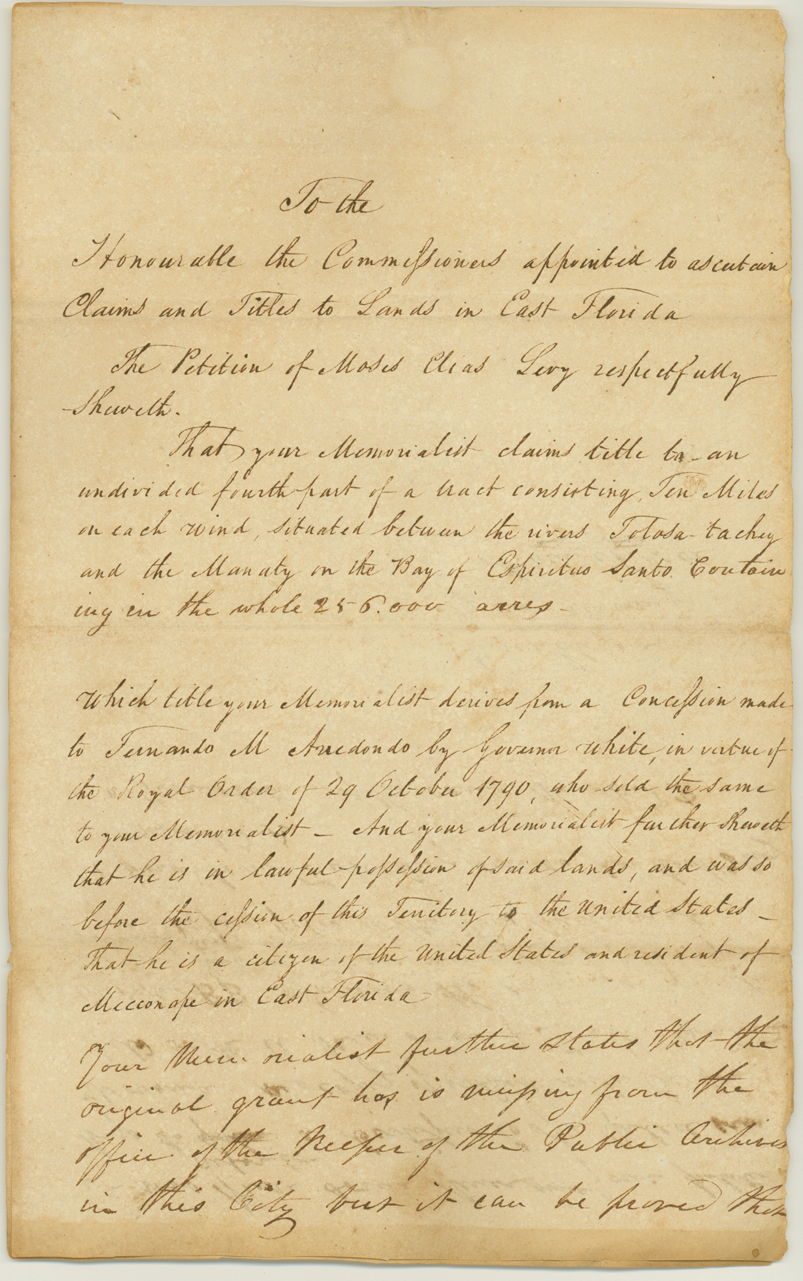 To the
Honourable the Commissioners appointed to ascertain
Claims and Titles to Lands in East Florida
The Petition of Moses Elias Levy respectfully
Sheweth.
That your Memorialist claims title to an
undivided fourth part of a tract consisting Ten Miles
on each wind, situated between the rivers Tolosa-tachey
and the Manaty on the Bay of Espiritus Santo. Contain
ing in the whole 256.000 acres -
Which title your Memorialist derives from a Concession made
to Fernando M Arredondo by Governor White, in virtue of
the Royal Order of 29 October 1790, who sold the same
to your Memorialist - And your Memorialist further Sheweth
that he is in lawful possession of said lands, and was so
before the cession of this Territory to the United States -
That he is a citizen of the United States and resident of
Micconope in East Florida
Your Memorialist further states that the
original grant has is missing from the
office of the Keeper of the Public Archives
in this City but it can be proved that